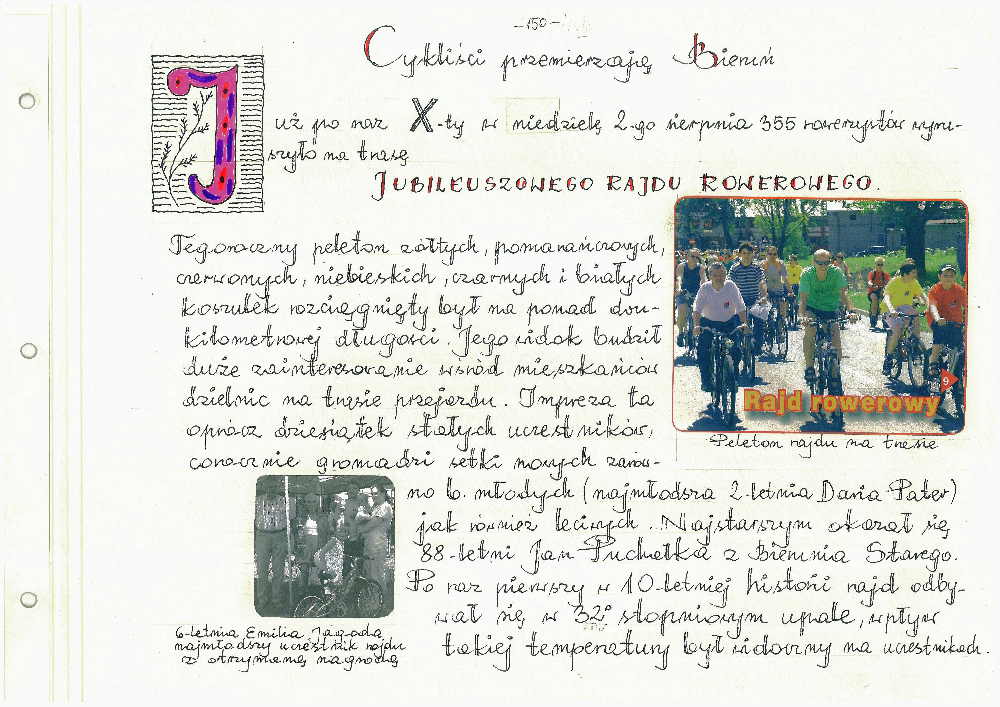 -150-
Cykliści przemierzają Bieruń
Już po raz X-ty w niedzielę 2-go sierpnia 355 rowerzystów wyru-
szyło na trasę
JUBILEUSZOWEGO RAJDU ROWEROWEGO.
Tegoroczny peleton żółtych, pomarańczowych,
czerwonych, niebieskich, czarnych i białych
koszulek rozciągnięty był na ponad dwu-
kilometrowej długości. Jego widok budził
duże zainteresowanie wśród mieszkańców
dzielnic na trasie przejazdu. Impreza ta
oprócz dziesiątek stałych uczestników,
corocznie gromadzi setki nowych zarów-
no b. młodych (najmłodsza 2-letnia Daria Pater)
jak również leciwych. Najstarszym okazał się
88-letni Jan Puchałka z Bierunia Starego.
Po raz pierwszy w 10-letniej historii rajd odby-
wał się w 32° stopniowym upale, wpływ
takiej temperatury był widoczny na uczestnikach.
9
Rajd rowerowy
Peleton rajdu na trasie
6-letnia Emilia Jagoda
najmłodszy uczestnik rajdu
z otrzymaną nagrodą